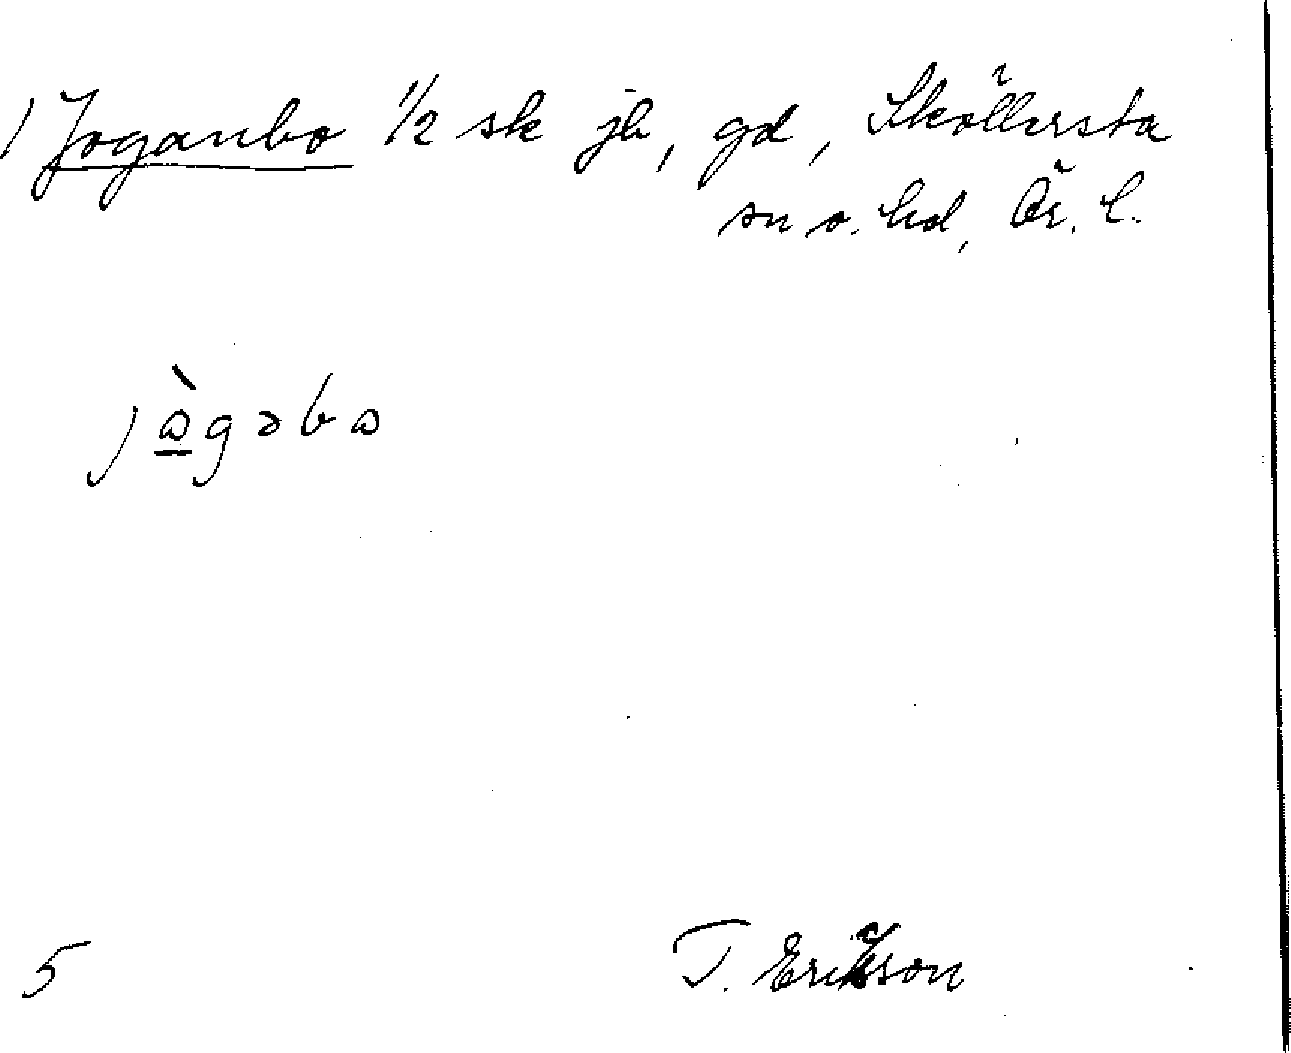 1) Joganbo 1/2 sk jb, gd, Sköllersta
sn o. hd, Ör. l.
jὼgəbω
5
T. Ericsson